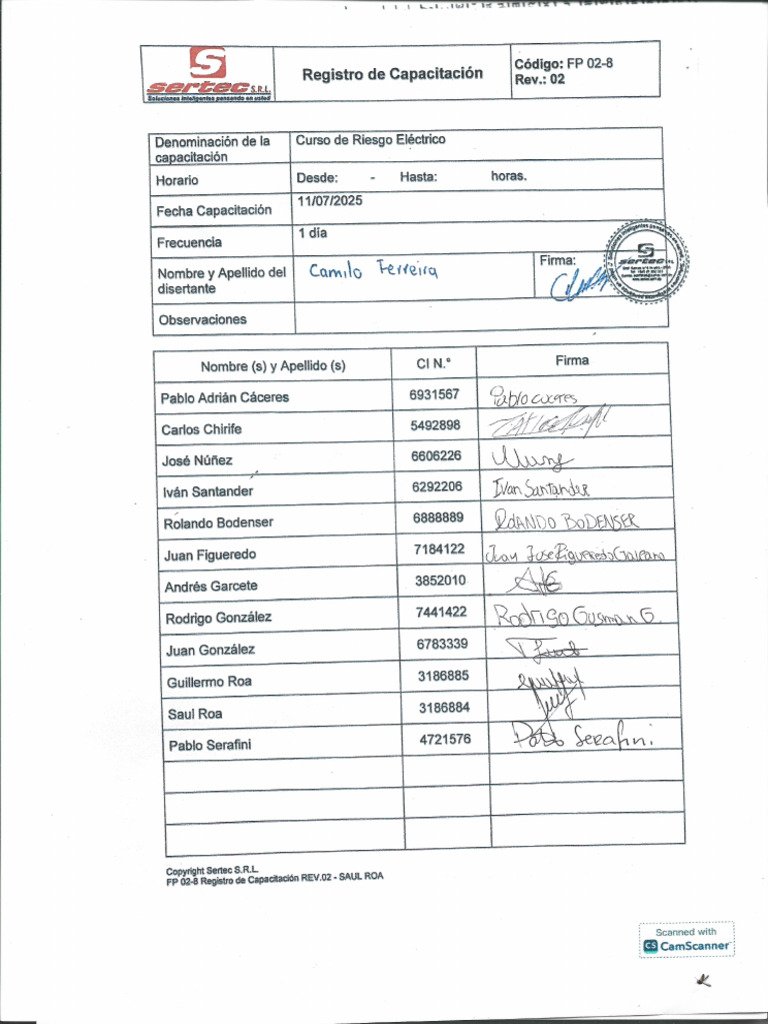 S
sertec S.R.L.
Soluciones inteligentes pensando en usted
Registro de Capacitación
Código: FP 02-8
Rev.: 02
Denominación de la capacitación
Curso de Riesgo Eléctrico
Horario
Desde: - Hasta: horas.
Fecha Capacitación
11/07/2025
Frecuencia
1 día
Nombre y Apellido del disertante
Camilo Ferreira
Firma:
sertec
Observaciones
Nombre (s) y Apellido (s) CI N.° Firma
Pablo Adrián Cáceres 6931567 Pablo caceres
Carlos Chirife 5492898
José Núñez 6606226
Iván Santander 6292206 Ivan Santander
Rolando Bodenser 6888889 RoLANDO BODENSER
Juan Figueredo 7184122 Juan Jose Figueredo Galeano
Andrés Garcete 3852010
Rodrigo González 7441422 Rodrigo Gusman G.
Juan González 6783339
Guillermo Roa 3186885
Saul Roa 3186884
Pablo Serafini 4721576 Pablo Serafini
Copyright Sertec S.R.L.
FP 02-8 Registro de Capacitación REV.02 - SAUL ROA
Scanned with
CS CamScanner